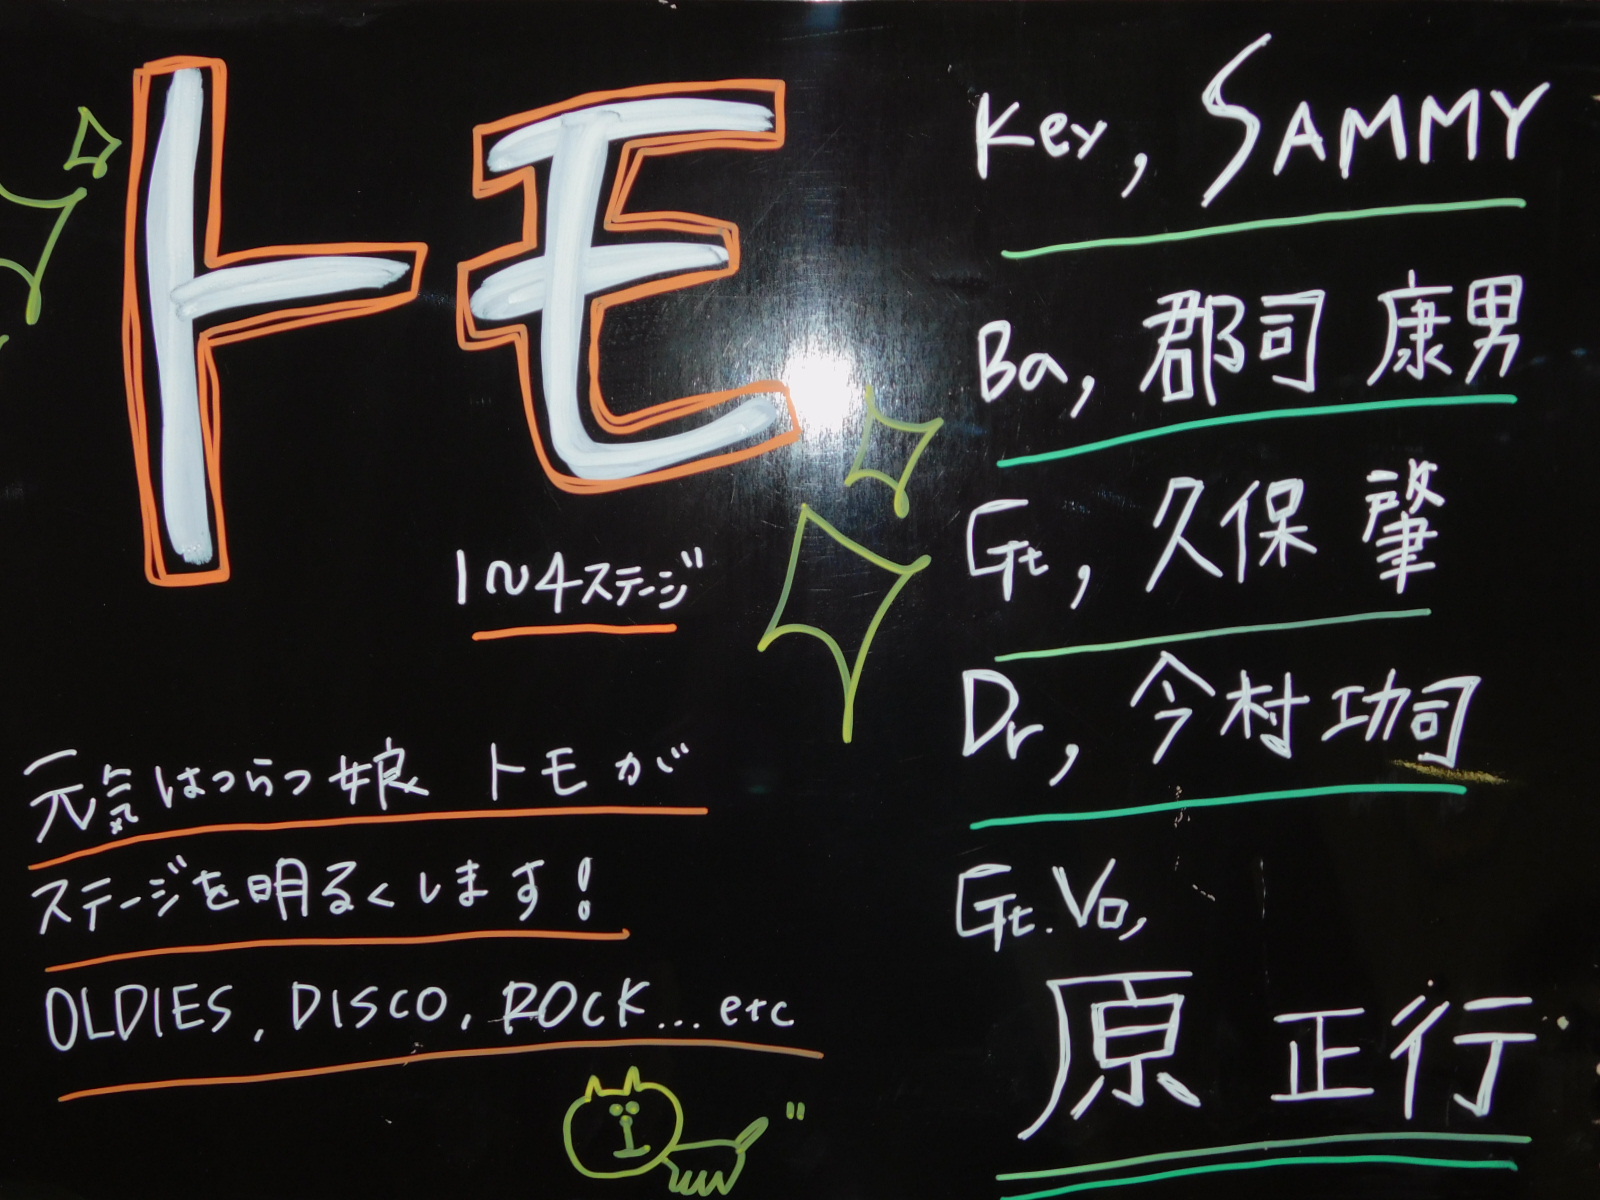 トモ
1〜4ステージ
元気はつらつ娘 トモが
ステージを明るくします!
OLDIES, DISCO, ROCK... etc
Key, SAMMY
Ba, 郡司 康男
Gt, 久保 肇
Dr, 今村 功司
Gt. Vo,
原 正行